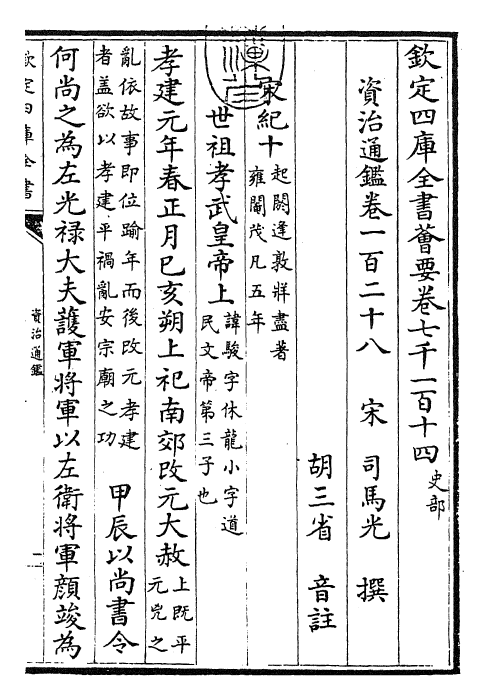 欽定四庫全書薈要卷七千一百十四 史部
資治通鑑卷一百二十八 宋 司馬光 撰
胡三省 音註
宋紀十 起閼逢敦牂盡著
雍閹茂凡五年
世祖孝武皇帝上 諱駿字休龍小字道
民文帝第三子也
孝建元年春正月巳亥朔上祀南郊改元大赦 上既平
元兇之
亂依故事即位踰年而後改元孝建
者盖欲以孝建平禍亂安宗廟之功 甲辰以尚書令
何尚之為左光禄大夫䕶軍將軍以左衛將軍顔竣為
欽定四庫全書
資治通鑑